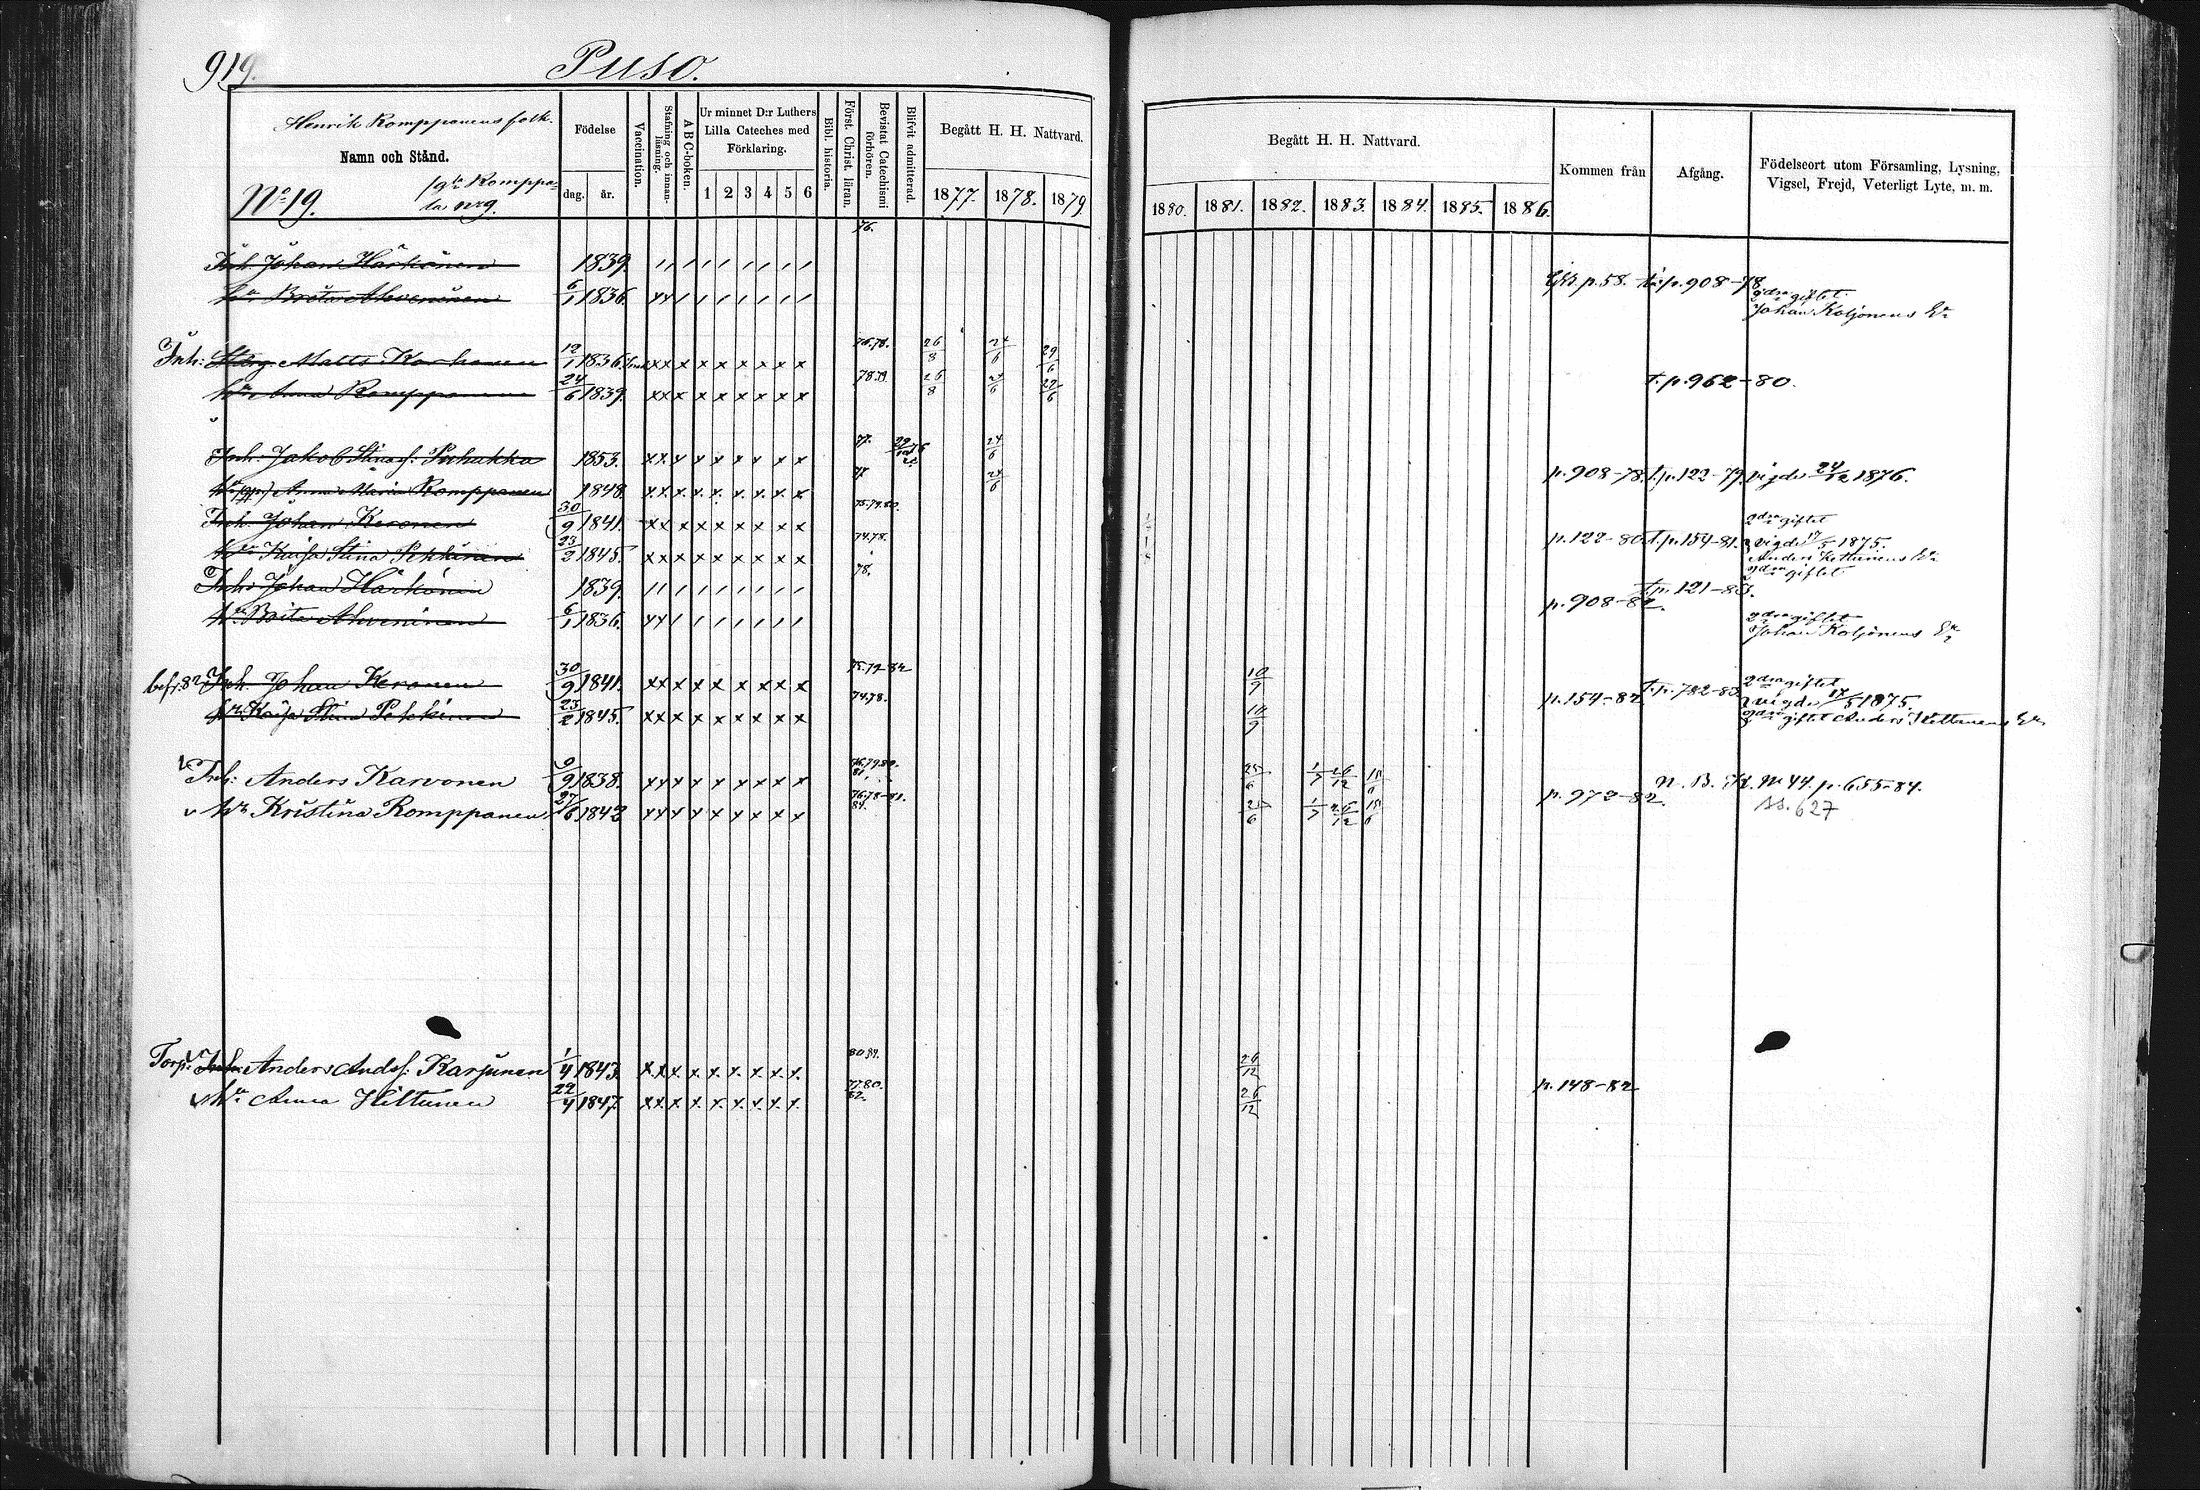 919. Puso.
Henrik Romppanens folk.
Namn och Stånd.
No 19.
Födelse
dag. år.
Vaccination.
Stafning och innanläsning.
A B C-boken.
Ur minnet D:r Luthers Lilla Cateches med Förklaring.
1 2 3 4 5 6
Bibl. historia.
Först. Christ. läran.
Bevistat Catechismi förhören.
Blifvit admitterad.
Begått H. H. Nattvard.
1877. 1878. 1879
Begått H. H. Nattvard.
1880. 1881. 1882. 1883. 1884. 1885. 1886.
Kommen från
Afgång.
Födelseort utom Församling, Lysning, Vigsel, Frejd, Veterligt Lyte, m. m.
76.
Inh. Johan Härkönen 1839.
Hu Brita Ahveninen 6/1 1836. p. 58. p. 908-78 2dra giftet
Johan Koljonens Ea
Inh: Matts Karhunen 12/1 1836. 76.78. 26/8 24/6 29/6
Hu Anna Romppanen 24/6 1839. 26/8 24/6 29/6 t. p. 962-80.
Inh. Jakob Stinas. Puhakka 1853. 77. 24/6
Hu Anna Maria Romppanen 1848. 77 24/6 p. 908-78. t. p. 122-79. vigde 24/12 1876.
Inh. Johan Keronen 30/9 1841. 75.79.80. 2dra giftet
Hu Kaisa Stina Pekkinen 23/2 1845. 74.78. p. 122-80. t. p. 154-81. vigde 17/5 1875.
Anders Kettunens Ea
2dra giftet
Inh. Johan Härkönen 1839. 78. t. p. 121-83.
Hu Brita Ahveninen 6/1 1836. p. 908-82. 2dra giftet
Johan Koljonens Ea
Inh. Johan Keronen 30/9 1841. 75.79-82 10/9 2dra giftet
Hu Kaisa Stina Pekkinen 23/2 1845. 74.78. 10/9 p. 154-82 t. p. 782-83 vigde 17/5 1875.
2dra giftet Anders Kettunens Ea
Inh: Anders Karvonen 9/9 1838. 76.79.80. 81. 25/6 1/7 26/12 15/6
Hu Kristina Romppanen 27/6 1842 76.78-81. 84. 25/6 1/7 26/12 15/6 p. 972-82. N. B. No 44. p. 655-84.
ss. 627
Torp. Inh. Anders Andsf: Karjunen 1/4 1843. 26/12
Hu Anna Hiltunen 22/4 1847. 77.80. 82. 26/12 p. 148-82